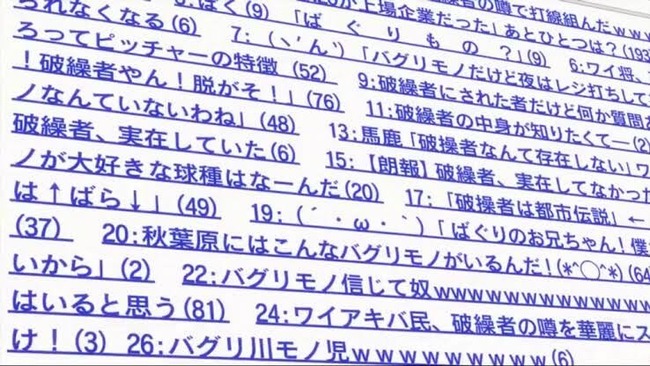 者の噂で打線組んだｗｗｗ
上場企業だった」あとひとつは？(193
ぱく(9) 「ばぐりもの？」(9) 6:ワイ将、
られなくなる(6) 7:(ヽ'ん')「バグリモノだけど夜はレジ打ちして
ろってピッチャーの特徴(52) 9:破繰者にされた者だけど何か質問
！破繰者やん！脱がそ！」(76) 11:破繰者の中身が知りたくて―(2)
ノなんていないわね」(48) 13:馬鹿「破操者なんて存在しない」ワ
破繰者、実在していた(6) 15:【朗報】破繰者、実在してなかった
ノが大好きな球種はなーんだ(20) 17:「破操者は都市伝説」←
は↑ばら↓」(49) 19:(´・ω・｀)「ばぐりのお兄ちゃん！僕
(37) 20:秋葉原にはこんなバグリモノがいるんだ！(*^◯^*)(64
いから」(2) 22:バグリモノ信じて奴wwwwwwwwwwwwww
はいると思う(81) 24:ワイアキバ民、破繰者の噂を華麗にス
け！(3) 26:バグリ川モノ児ｗｗｗｗｗｗｗｗｗ(6)